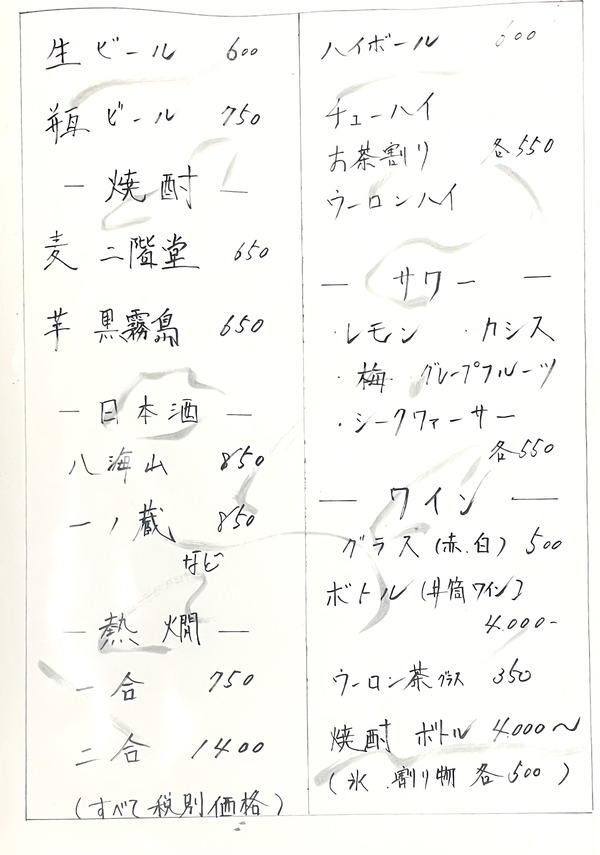 生ビール 600
瓶ビール 750
― 焼酎 ―
麦 二階堂 650
芋 黒霧島 650
― 日本酒 ―
八海山 850
一ノ蔵 850
など
― 熱燗 ―
一合 750
二合 1400
(すべて税別価格)
ハイボール 600
チューハイ
お茶割り 各550
ウーロンハイ
― サワー ―
・レモン ・カシス
・梅 ・グレープフルーツ
・シークヮーサー
各550
― ワイン ―
グラス (赤.白) 500
ボトル (井筒ワイン)
4.000-
ウーロン茶グラス 350
焼酎 ボトル 4.000〜
(氷.割り物 各500)